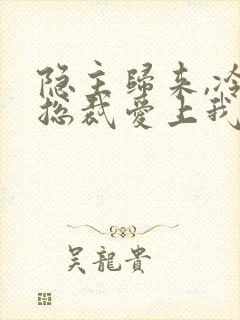 隐主歸来,冷
总裁愛上我
吴龍貴